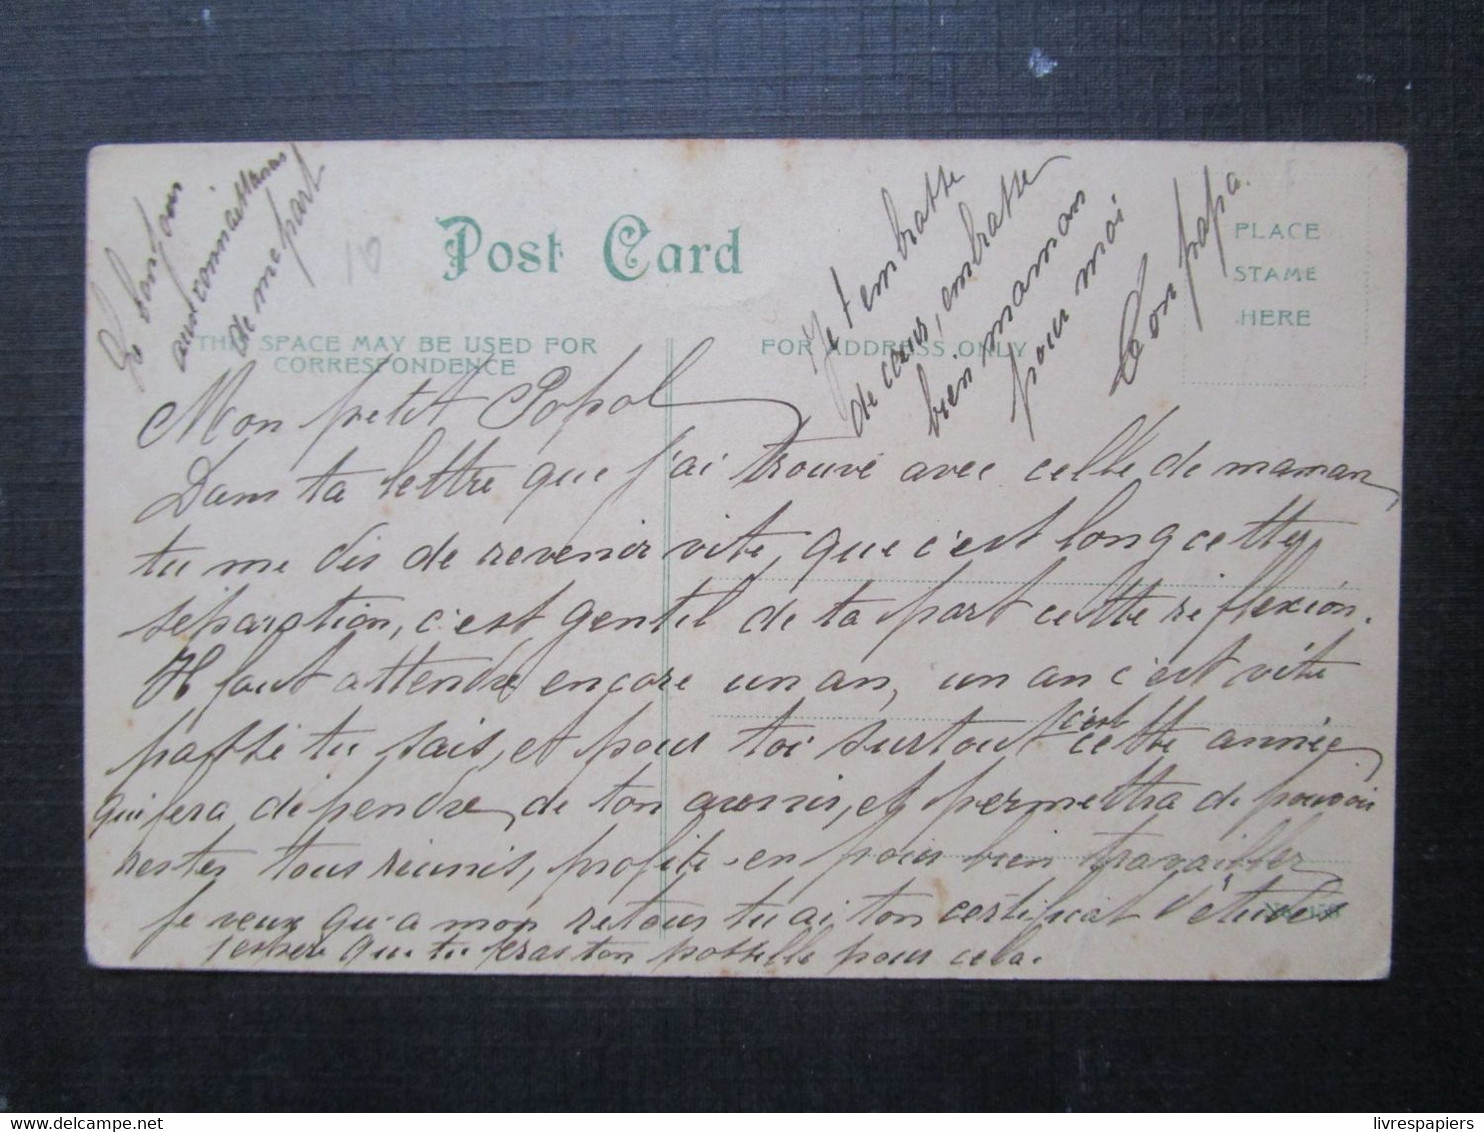 Le bonjour
aux connaissances
de me part
10
Post Card
THIS SPACE MAY BE USED FOR
CORRESPONDENCE
FOR ADDRESS ONLY
PLACE
STAME
HERE
Je t'embrasse
de cœur, embrasse
bien maman
pour moi
Ton papa.
Mon petit Popol
Dans ta lettre que j'ai trouvé avec celle de maman,
tu me dis de revenir vite, que c'est long cette
séparation, c'est gentil de ta part cette réflexion.
Il faut attendre encore un an, un an c'est vite
passé tu sais, et pour toi surtout c'est cette année
qui fera dépendre de ton avenir, et permettra de pouvoir
rester tous réunis, profite-en pour bien travailler
je veux qu'a mon retour tu ai ton certificat d'études
j'espère que tu feras ton possible pour cela.
livrespapiers